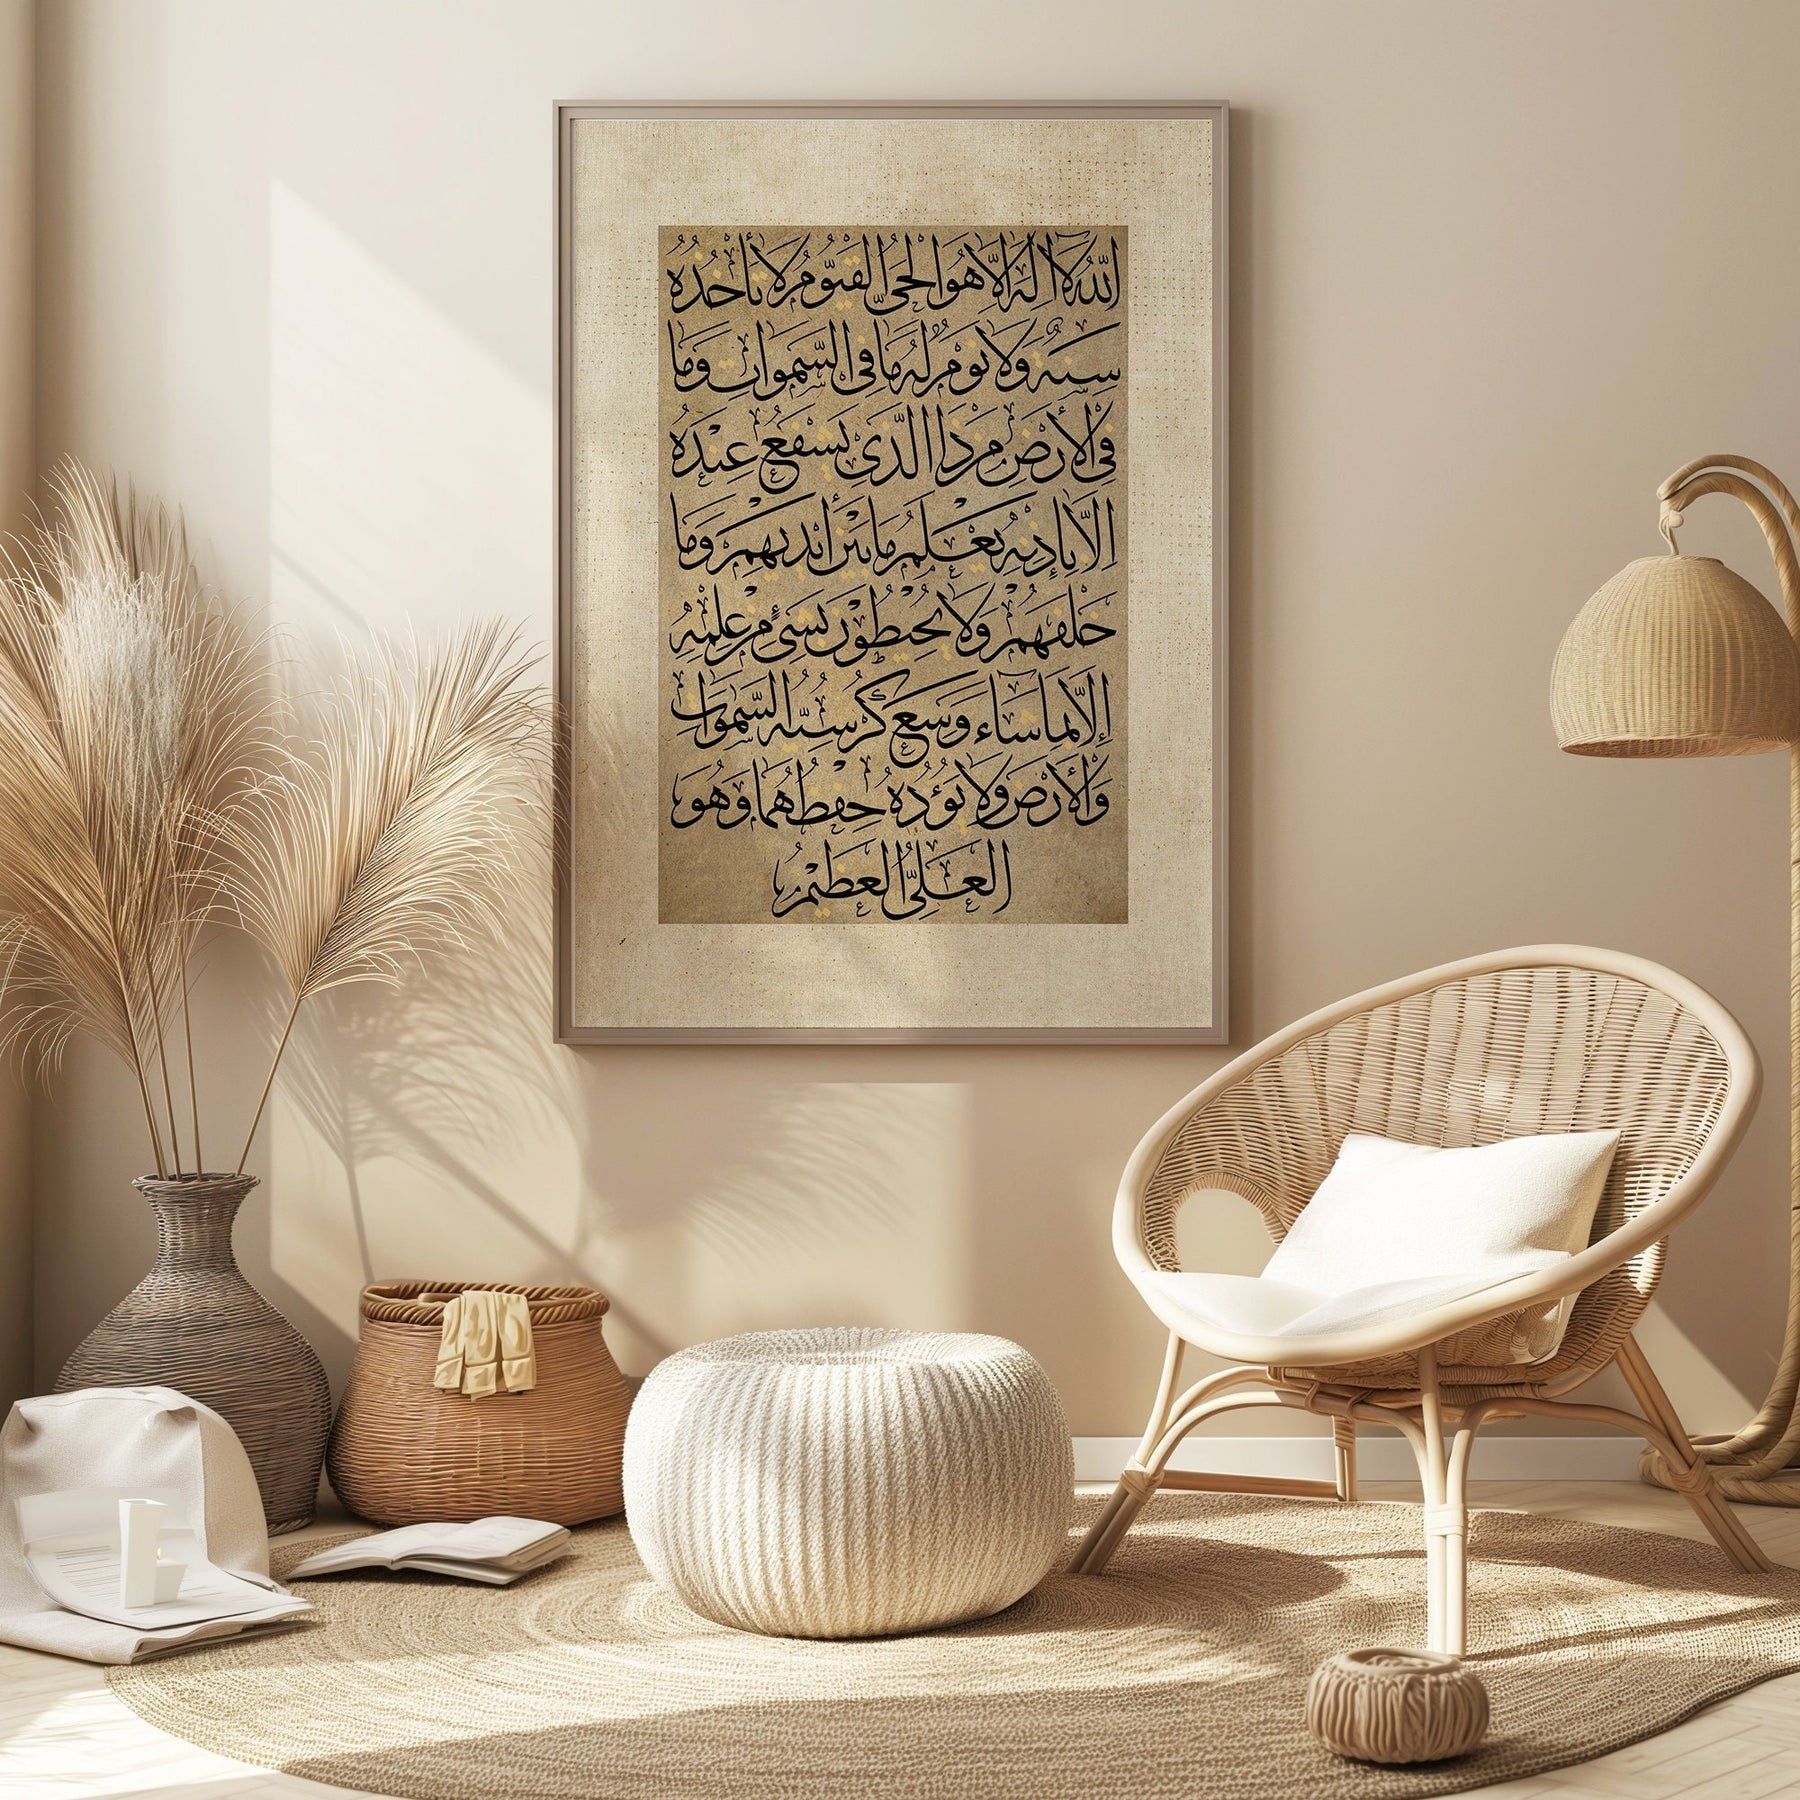 الله لا اله الا هو الحي القيوم لا تأخذه
سنة ولا نوم له ما في السموات وما
في الأرض من ذا الذي يشفع عنده
الا بإذنه يعلم ما بين أيديهم وما
خلفهم ولا يحيطون بشيء من علمه
إلا بما شاء وسع كرسيه السموات
والأرض ولا يؤده حفظهما وهو
العلي العظيم